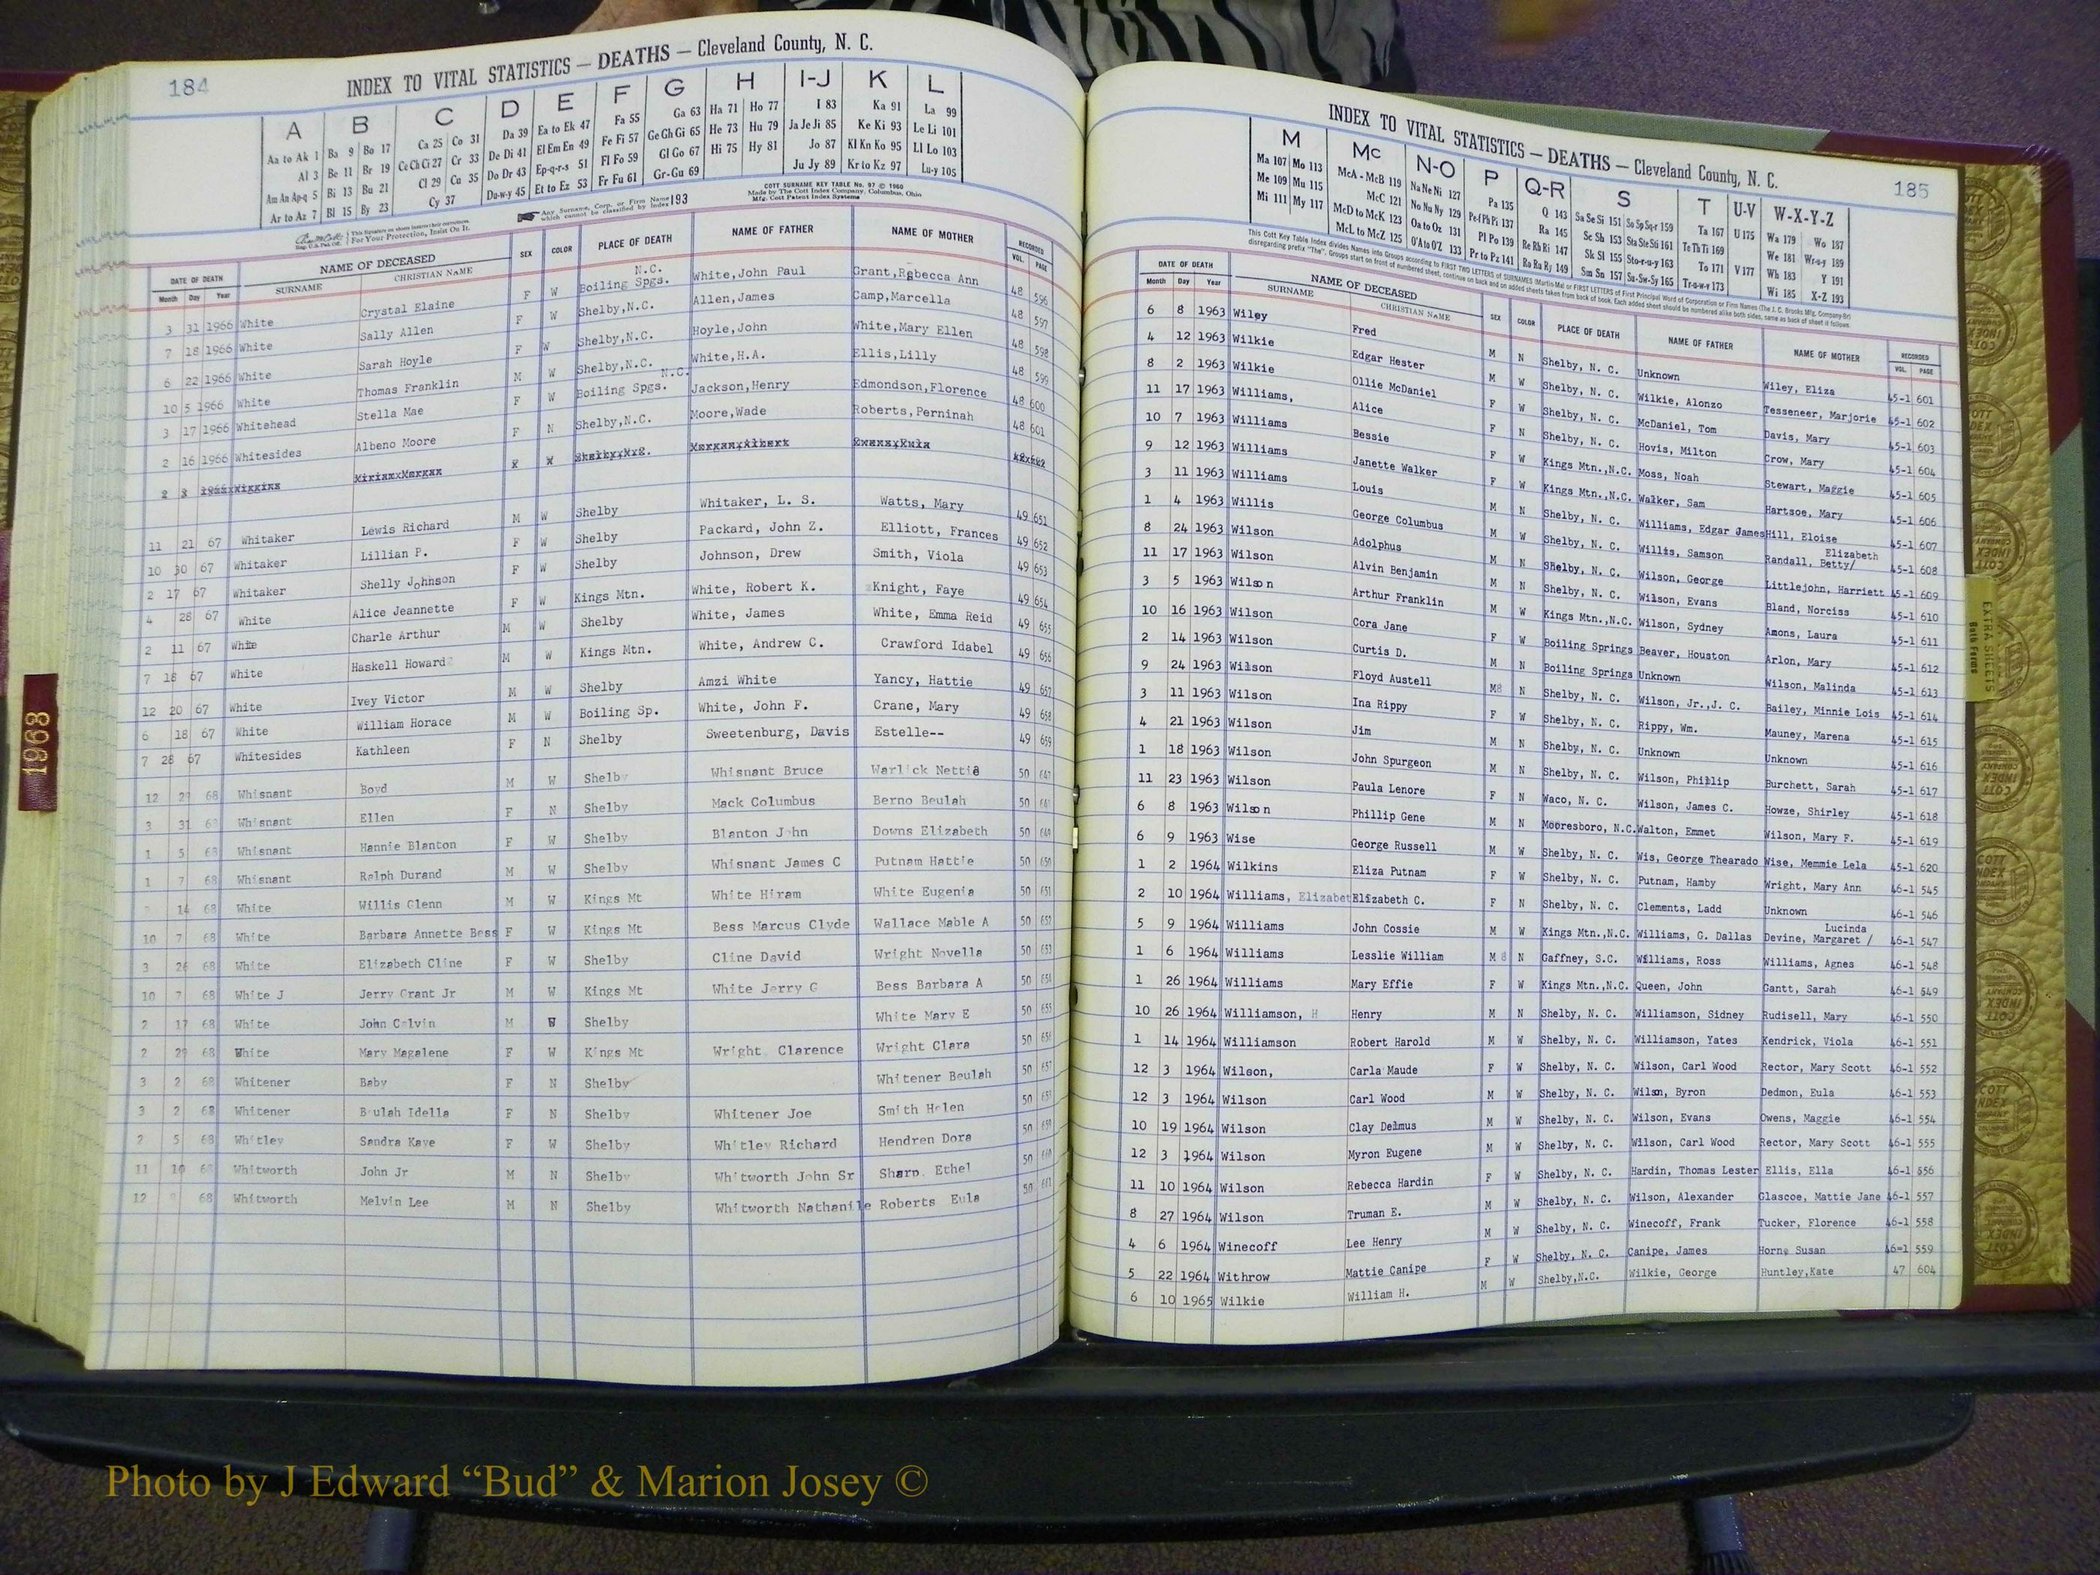 184
INDEX TO VITAL STATISTICS — DEATHS — Cleveland County, N. C.
A B C D E F G H I-J K L
Aa to Ak 1 Ba 9 Bo 17 Ca 25 Co 31 Da 39 Ea to Ek 47 Fa 55 Ga 63 Ha 71 Ho 77 I 83 Ka 91 La 99
Al 3 Be 11 Br 19 Ce Ch Ci 27 Cr 33 De Di 41 El Em En 49 Fe Fi 57 Ge Gh Gi 65 He 73 Hu 79 Ja Je Ji 85 Ke Ki 93 Le Li 101
Am An Ap-q 5 Bi 13 Bu 21 Cl 29 Cu 35 Do Dr 43 Ep-q-r-s 51 Fl Fo 59 Gl Go 67 Hi 75 Hy 81 Jo 87 Kl Kn Ko 95 Ll Lo 103
Ar to Az 7 Bl 15 By 23 Cy 37 Du-w-y 45 Et to Ez 53 Fr Fu 61 Gr-Gu 69 Ju Jy 89 Kr to Kz 97 Lu-y 105
This Signature on sheets insures their correctness. For Your Protection, Insist On It.
Any Surname, Corp. or Firm Name which cannot be classified by Index 193
COTT SURNAME KEY TABLE No. 97 © 1960
Made by The Cott Index Company, Columbus, Ohio
Mfg. Cott Patent Index Systems
DATE OF DEATH NAME OF DECEASED SEX COLOR PLACE OF DEATH NAME OF FATHER NAME OF MOTHER RECORDED
Month Day Year SURNAME CHRISTIAN NAME VOL. PAGE
3 31 1966 White Crystal Elaine F W Boiling Spgs. N.C. White,John Paul Grant,Rebecca Ann 48 596
7 18 1966 White Sally Allen F W Shelby,N.C. Allen,James Camp,Marcella 48 597
6 22 1966 White Sarah Hoyle F W Shelby,N.C. Hoyle,John White,Mary Ellen 48 598
10 5 1966 White Thomas Franklin M W Shelby,N.C. White,H.A. Ellis,Lilly 48 599
3 17 1966 Whitehead Stella Mae F W Boiling Spgs. N.C. Jackson,Henry Edmondson,Florence 48 600
2 16 1966 Whitesides Albeno Moore F N Shelby,N.C. Moore,Wade Roberts,Perninah 48 601
11 21 67 Whitaker Lewis Richard M W Shelby Whitaker, L. S. Watts, Mary 49 651
10 30 67 Whitaker Lillian P. F W Shelby Packard, John Z. Elliott, Frances 49 652
2 17 67 Whitaker Shelly Johnson F W Shelby Johnson, Drew Smith, Viola 49 653
4 28 67 White Alice Jeannette F W Kings Mtn. White, Robert K. Knight, Faye 49 654
2 11 67 White Charle Arthur M W Shelby White, James White, Emma Reid 49 655
7 18 67 White Haskell Howard M W Kings Mtn. White, Andrew C. Crawford Idabel 49 656
12 20 67 White Ivey Victor M W Shelby Amzi White Yancy, Hattie 49 657
6 18 67 White William Horace M W Boiling Sp. White, John F. Crane, Mary 49 658
7 28 67 Whitesides Kathleen F N Shelby Sweetenburg, Davis Estelle-- 49 659
12 68 Whisnant Boyd M W Shelby Whisnant Bruce Warlick Nettie 50 647
3 31 68 Whisnant Ellen F N Shelby Mack Columbus Berno Beulah 50
1 5 68 Whisnant Hannie Blanton F W Shelby Blanton John Downs Elizabeth 50 649
1 7 68 Whisnant Ralph Durand M W Shelby Whisnant James C Putnam Hattie 50 650
14 68 White Willis Glenn M W Kings Mt White Hiram White Eugenia 50 651
10 7 68 White Barbara Annette Bess F W Kings Mt Bess Marcus Clyde Wallace Mable A 50 652
3 26 68 White Elizabeth Cline F W Shelby Cline David Wright Novella 50 653
10 7 68 White J Jerry Grant Jr M W Kings Mt White Jerry G Bess Barbara A 50 654
2 17 68 White John Calvin M W Shelby White Mary E 50 655
2 29 68 White Mary Magalene F W Kings Mt Wright Clarence Wright Clara 50 656
3 2 68 Whitener Baby F N Shelby Whitener Beulah 50 657
3 2 68 Whitener Beulah Idella F N Shelby Whitener Joe Smith Helen 50
2 5 68 Whitley Sandra Kaye F W Shelby Whitley Richard Hendren Dora 50 659
11 10 68 Whitworth John Jr M N Shelby Whitworth John Sr Sharp, Ethel 50 660
12 68 Whitworth Melvin Lee M N Shelby Whitworth Nathanile Roberts Eula 50 661
1968
185
INDEX TO VITAL STATISTICS — DEATHS — Cleveland County, N. C.
M Mc N-O P Q-R S T U-V W-X-Y-Z
Ma 107 Mo 113 McA - McB 119 Na Ne Ni 127 Pa 135 Q 143 Sa Se Si 151 So Sp Sq-r 159 Ta 167 U 175 Wa 179 Wo 187
Me 109 Mu 115 McC 121 No Nu Ny 129 Pe-f Ph Pi 137 Ra 145 Sc Sh 153 Sta Ste Sti 161 Te Th Ti 169 We 181 Wr-u-y 189
Mi 111 My 117 McD to McK 123 Oa to Oz 131 Pl Po 139 Re Rh Ri 147 Sk Sl 155 Sto-r-u-y 163 To 171 V 177 Wh 183 Y 191
McL to McZ 125 O'A to O'Z 133 Pr to Pz 141 Ro Ru Ry 149 Sm Sn 157 Su-Sw-Sy 165 Tr-u-w-y 173 Wi 185 X-Z 193
This Cott Key Table Index divides Names into Groups according to FIRST TWO LETTERS of SURNAMES (Martin-Ma) or FIRST LETTERS of First Principal Word of Corporation or Firm Names (The J. C. Brooks Mfg. Company-Br)
disregarding prefix "The". Groups start on front of numbered sheet, continue on back and on added sheets taken from back of book. Each added sheet should be numbered alike both sides, same as back of sheet it follows.
DATE OF DEATH NAME OF DECEASED SEX COLOR PLACE OF DEATH NAME OF FATHER NAME OF MOTHER RECORDED
Month Day Year SURNAME CHRISTIAN NAME VOL. PAGE
6 8 1963 Wiley Fred M N Shelby, N. C. Unknown Wiley, Eliza 45-1 601
4 12 1963 Wilkie Edgar Hester M W Shelby, N. C. Wilkie, Alonzo Tesseneer, Marjorie 45-1 602
8 2 1963 Wilkie Ollie McDaniel F W Shelby, N. C. McDaniel, Tom Davis, Mary 45-1 603
11 17 1963 Williams, Alice F N Shelby, N. C. Hovis, Milton Crow, Mary 45-1 604
10 7 1963 Williams Bessie F W Kings Mtn.,N.C. Moss, Noah Stewart, Maggie 45-1 605
9 12 1963 Williams Janette Walker F W Kings Mtn.,N.C. Walker, Sam Hartsoe, Mary 45-1 606
3 11 1963 Williams Louis M N Shelby, N. C. Williams, Edgar James Hill, Eloise 45-1 607
1 4 1963 Willis George Columbus M W Shelby, N. C. Willis, Samson Randall, Betty/ Elizabeth 45-1 608
8 24 1963 Wilson Adolphus M N Shelby, N. C. Wilson, George Littlejohn, Harriett 45-1 609
11 17 1963 Wilson Alvin Benjamin M N Shelby, N. C. Wilson, Evans Bland, Norciss 45-1 610
3 5 1963 Wilson Arthur Franklin M W Kings Mtn.,N.C. Wilson, Sydney Amons, Laura 45-1 611
10 16 1963 Wilson Cora Jane F W Boiling Springs Beaver, Houston Arlon, Mary 45-1 612
2 14 1963 Wilson Curtis D. M N Boiling Springs Unknown Wilson, Malinda 45-1 613
9 24 1963 Wilson Floyd Austell M8 N Shelby, N. C. Wilson, Jr.,J. C. Bailey, Minnie Lois 45-1 614
3 11 1963 Wilson Ina Rippy F W Shelby, N. C. Rippy, Wm. Mauney, Marena 45-1 615
4 21 1963 Wilson Jim M N Shelby, N. C. Unknown Unknown 45-1 616
1 18 1963 Wilson John Spurgeon M N Shelby, N. C. Wilson, Phillip Burchett, Sarah 45-1 617
11 23 1963 Wilson Paula Lenore F N Waco, N. C. Wilson, James C. Howze, Shirley 45-1 618
6 8 1963 Wilson Phillip Gene M N Mooresboro, N.C. Walton, Emmet Wilson, Mary F. 45-1 619
6 9 1963 Wise George Russell M W Shelby, N. C. Wis, George Thearado Wise, Memmie Lela 45-1 620
1 2 1964 Wilkins Eliza Putnam F W Shelby, N. C. Putnam, Hamby Wright, Mary Ann 46-1 545
2 10 1964 Williams, Elizabet Elizabeth C. F N Shelby, N. C. Clements, Ladd Unknown 46-1 546
5 9 1964 Williams John Cossie M W Kings Mtn.,N.C. Williams, G. Dallas Devine, Margaret / Lucinda 46-1 547
1 6 1964 Williams Lesslie William M 8 N Gaffney, S.C. Williams, Ross Williams, Agnes 46-1 548
1 26 1964 Williams Mary Effie F W Kings Mtn.,N.C. Queen, John Gantt, Sarah 46-1 549
10 26 1964 Williamson, H Henry M N Shelby, N. C. Williamson, Sidney Rudisell, Mary 46-1 550
1 14 1964 Williamson Robert Harold M W Shelby, N. C. Williamson, Yates Kendrick, Viola 46-1 551
12 3 1964 Wilson, Carla Maude F W Shelby, N. C. Wilson, Carl Wood Rector, Mary Scott 46-1 552
12 3 1964 Wilson Carl Wood M W Shelby, N. C. Wilson, Byron Dedmon, Eula 46-1 553
10 19 1964 Wilson Clay Delmus M W Shelby, N. C. Wilson, Evans Owens, Maggie 46-1 554
12 3 1964 Wilson Myron Eugene M W Shelby, N. C. Wilson, Carl Wood Rector, Mary Scott 46-1 555
11 10 1964 Wilson Rebecca Hardin F W Shelby, N. C. Hardin, Thomas Lester Ellis, Ella 46-1 556
8 27 1964 Wilson Truman E. M W Shelby, N. C. Wilson, Alexander Glascoe, Mattie Jane 46-1 557
4 6 1964 Winecoff Lee Henry M W Shelby, N. C. Winecoff, Frank Tucker, Florence 46-1 558
5 22 1964 Withrow Mattie Canipe F W Shelby, N. C. Canipe, James Horne Susan 46-1 559
6 10 1965 Wilkie William H. M W Shelby,N.C. Wilkie, George Huntley,Kate 47 604
EXTRA SHEETS
Photo by J Edward “Bud” & Marion Josey ©